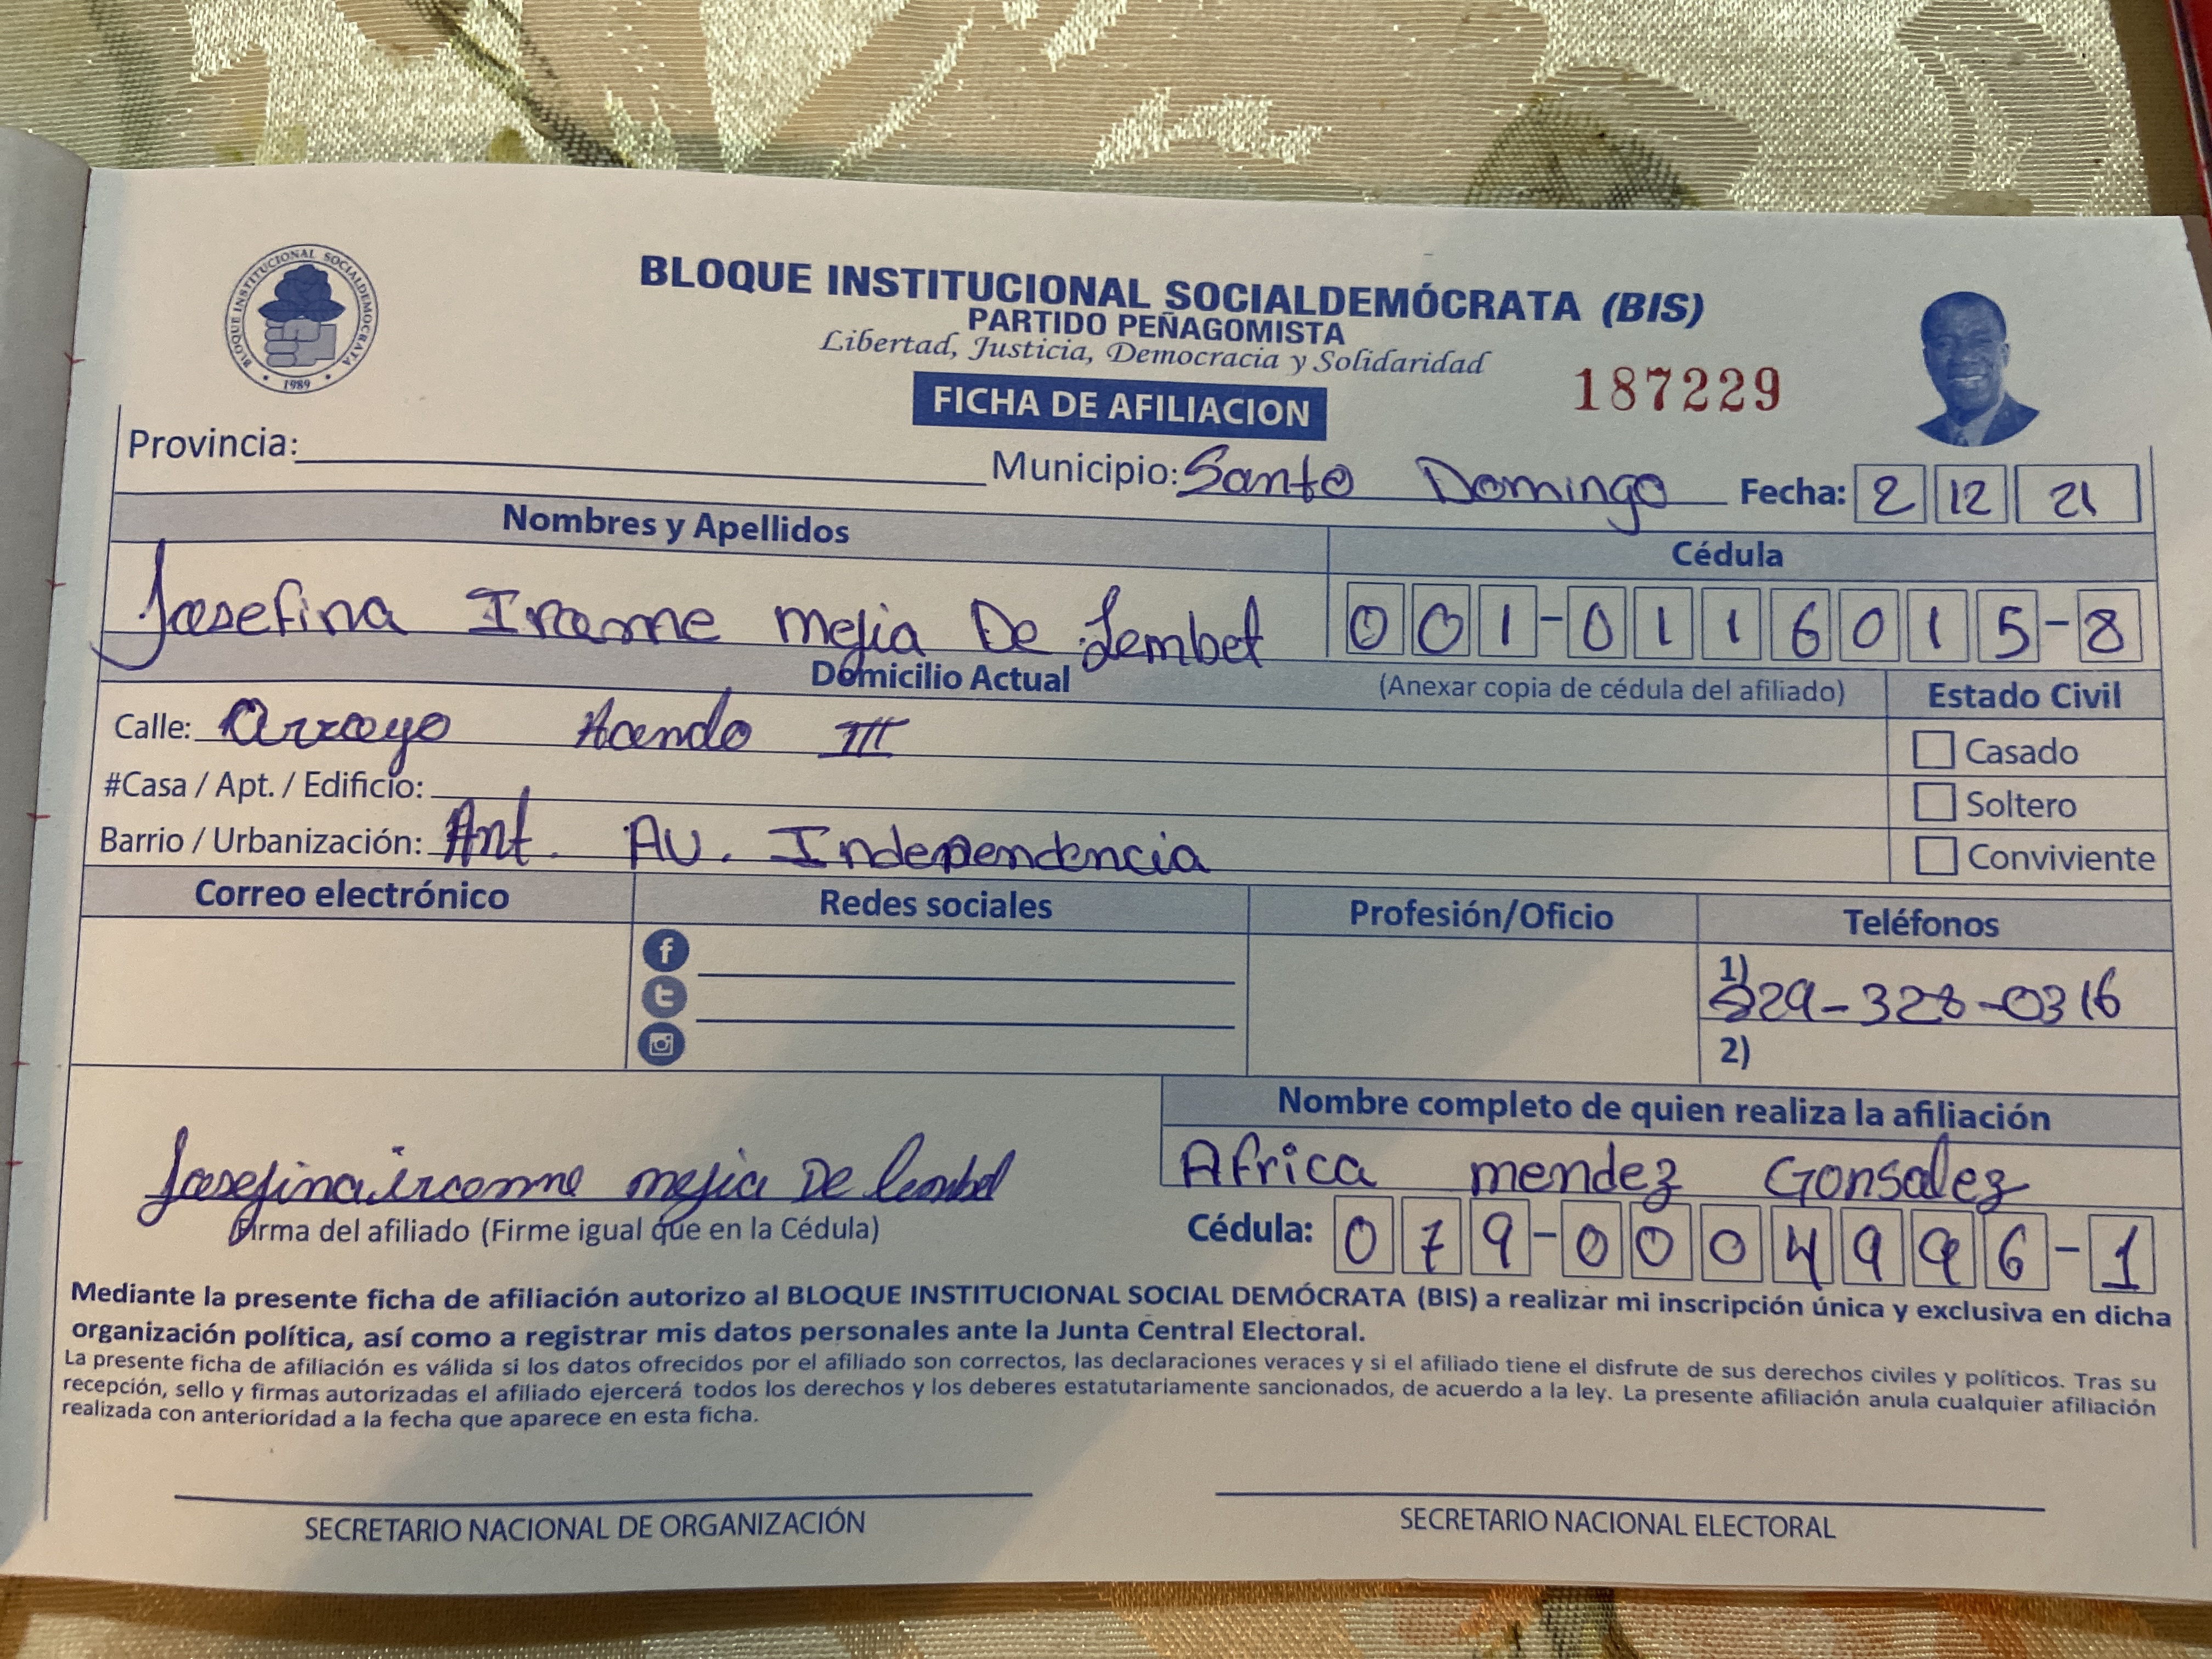 BLOQUE INSTITUCIONAL SOCIALDEMOCRATA
1989
BLOQUE INSTITUCIONAL SOCIALDEMÓCRATA (BIS)
PARTIDO PEÑAGOMISTA
Libertad, Justicia, Democracia y Solidaridad
FICHA DE AFILIACION
187229
Provincia: Municipio: Santo Domingo Fecha: 2 12 21
Nombres y Apellidos Cédula
Josefina mejia De 001-0116015-8
Domicilio Actual (Anexar copia de cédula del afiliado) Estado Civil
Calle: Arroyo III
Casado
#Casa / Apt. / Edificio:
Soltero
Barrio / Urbanización: Ant. Av. Independencia
Conviviente
Correo electrónico Redes sociales Profesión/Oficio Teléfonos
f
t
1) 829-328-0316
2)
Nombre completo de quien realiza la afiliación
Africa mendez Gonsalez
Josefina mejia De
Firma del afiliado (Firme igual que en la Cédula)
Cédula: 079-0004996-1
Mediante la presente ficha de afiliación autorizo al BLOQUE INSTITUCIONAL SOCIAL DEMÓCRATA (BIS) a realizar mi inscripción única y exclusiva en dicha
organización política, así como a registrar mis datos personales ante la Junta Central Electoral.
La presente ficha de afiliación es válida si los datos ofrecidos por el afiliado son correctos, las declaraciones veraces y si el afiliado tiene el disfrute de sus derechos civiles y políticos. Tras su
recepción, sello y firmas autorizadas el afiliado ejercerá todos los derechos y los deberes estatutariamente sancionados, de acuerdo a la ley. La presente afiliación anula cualquier afiliación
realizada con anterioridad a la fecha que aparece en esta ficha.
SECRETARIO NACIONAL DE ORGANIZACIÓN SECRETARIO NACIONAL ELECTORAL